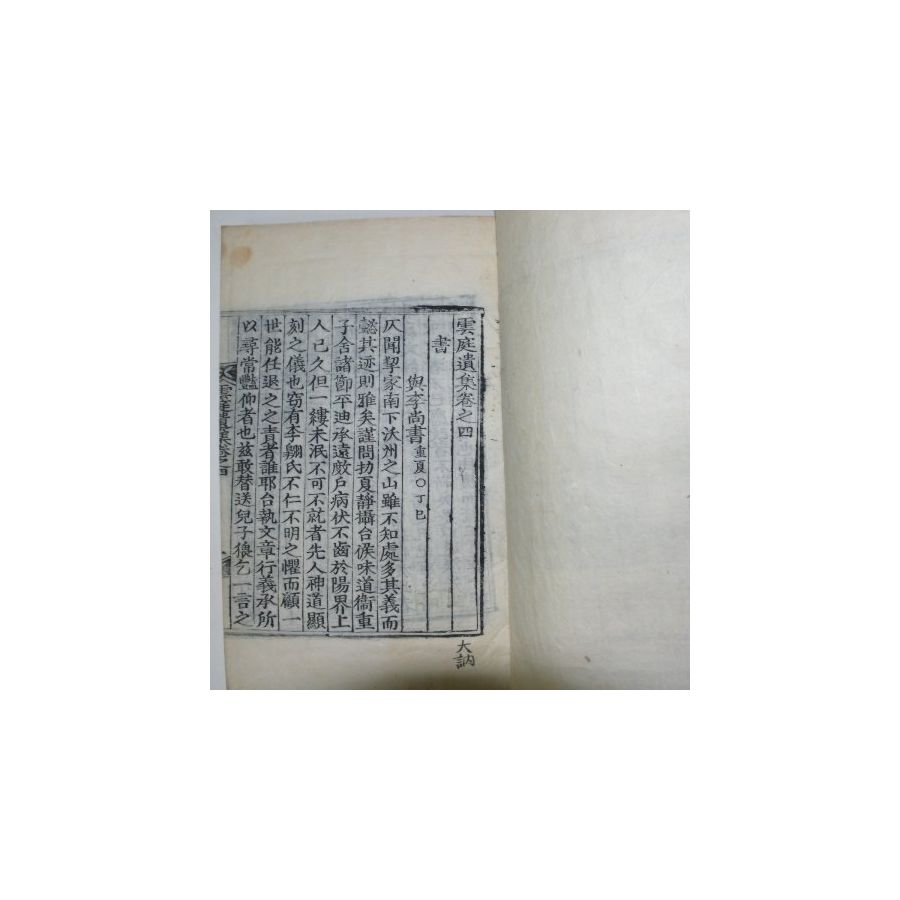 雲庭遺集卷之四
書
與李尚書重夏○丁巳
仄聞挈家南下沃州之山雖不知處多其義而
懿其迹則雅矣謹問抄夏靜攝台候味道衛重
子舍諸節平迪承遠戲戶病伏不齒於陽界上
人已久但一縷未泯不可不就者先人神道顯
刻之儀也窃有李翶氏不仁不明之懼而顧一
世能任退之之責者誰耶台執文章行義承所
以尋常豔仰者也玆敢替送兒子
乞一言之
雲庭遺集卷之四
大訥